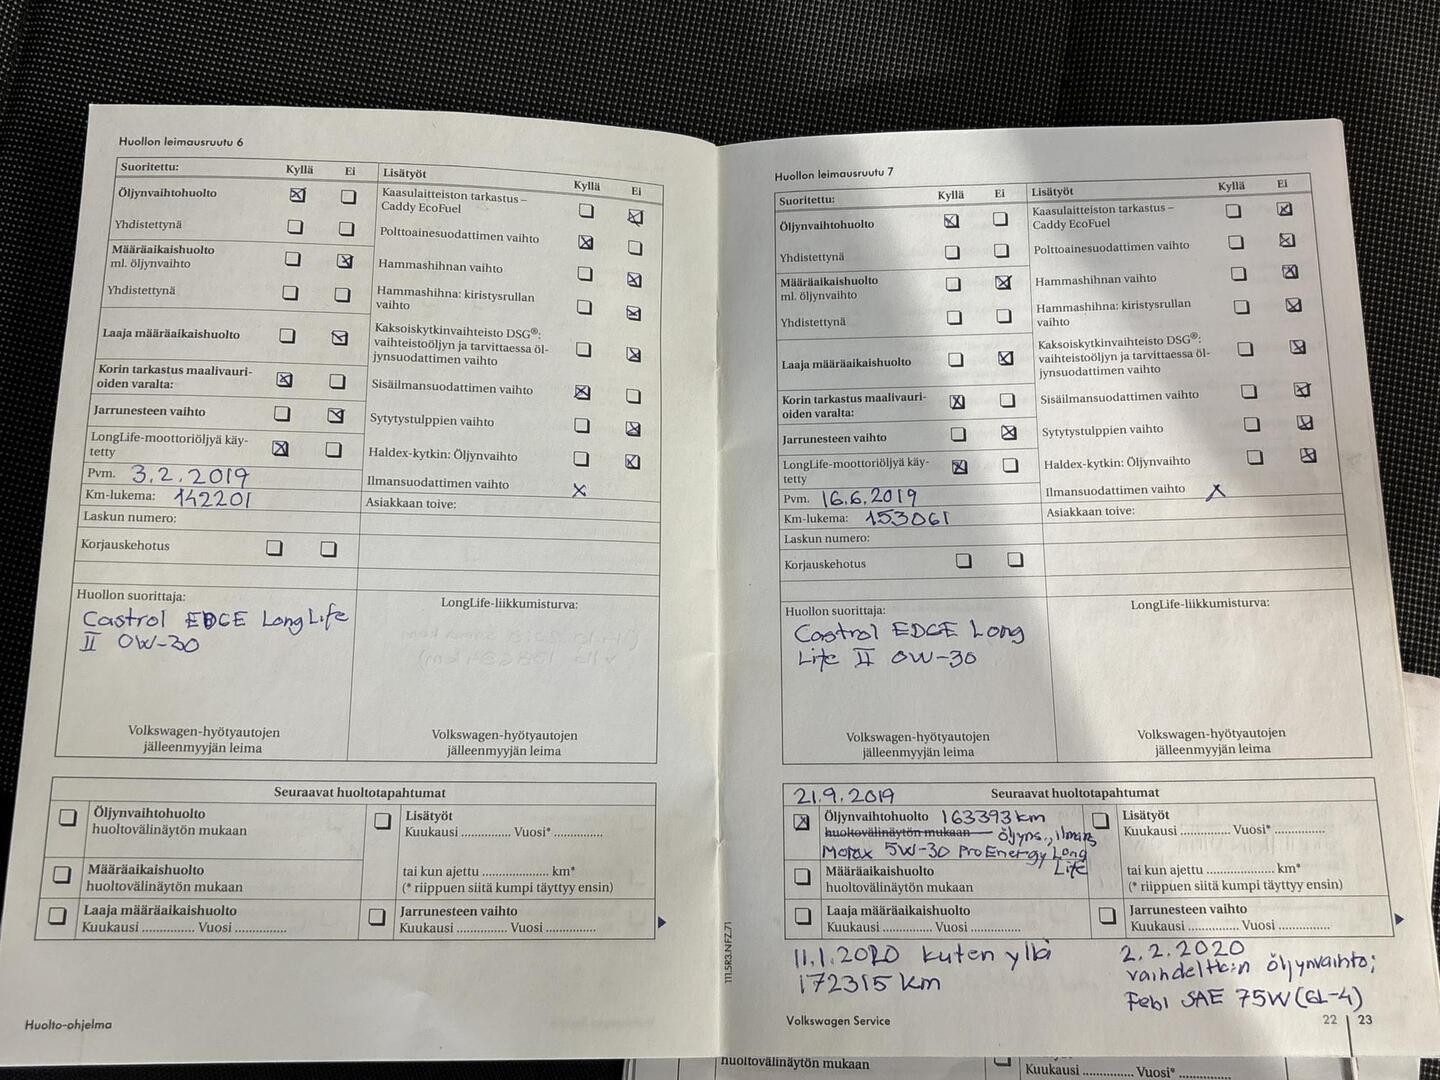 Huollon leimausruutu 6
Suoritettu: Kyllä Ei
Öljynvaihtohuolto
Yhdistettynä
Määräaikaishuolto
ml. öljynvaihto
Yhdistettynä
Laaja määräaikaishuolto
Korin tarkastus maalivauri-
oiden varalta:
Jarrunesteen vaihto
LongLife-moottoriöljyä käy-
tetty
Pvm. 3.2.2019
Km-lukema: 142201
Laskun numero:
Korjauskehotus
Lisätyöt Kyllä Ei
Kaasulaitteiston tarkastus –
Caddy EcoFuel
Polttoainesuodattimen vaihto
Hammashihnan vaihto
Hammashihna: kiristysrullan
vaihto
Kaksoiskytkinvaihteisto DSG®:
vaihteistoöljyn ja tarvittaessa öl-
jynsuodattimen vaihto
Sisäilmansuodattimen vaihto
Sytytystulppien vaihto
Haldex-kytkin: Öljynvaihto
Ilmansuodattimen vaihto X
Asiakkaan toive:
Huollon suorittaja:
Castrol EDGE LongLife
II 0W-30
Volkswagen-hyötyautojen
jälleenmyyjän leima
LongLife-liikkumisturva:
Volkswagen-hyötyautojen
jälleenmyyjän leima
Seuraavat huoltotapahtumat
Öljynvaihtohuolto
huoltovälinäytön mukaan
Määräaikaishuolto
huoltovälinäytön mukaan
Laaja määräaikaishuolto
Kuukausi .............. Vuosi ..............
Lisätyöt
Kuukausi .............. Vuosi* ..............
tai kun ajettu .................... km*
(* riippuen siitä kumpi täyttyy ensin)
Jarrunesteen vaihto
Kuukausi .............. Vuosi ..............
Huolto-ohjelma
Huollon leimausruutu 7
Suoritettu: Kyllä Ei
Öljynvaihtohuolto
Yhdistettynä
Määräaikaishuolto
ml. öljynvaihto
Yhdistettynä
Laaja määräaikaishuolto
Korin tarkastus maalivauri-
oiden varalta:
Jarrunesteen vaihto
LongLife-moottoriöljyä käy-
tetty
Pvm. 16.6.2019
Km-lukema: 153061
Laskun numero:
Korjauskehotus
Lisätyöt Kyllä Ei
Kaasulaitteiston tarkastus –
Caddy EcoFuel
Polttoainesuodattimen vaihto
Hammashihnan vaihto
Hammashihna: kiristysrullan
vaihto
Kaksoiskytkinvaihteisto DSG®:
vaihteistoöljyn ja tarvittaessa öl-
jynsuodattimen vaihto
Sisäilmansuodattimen vaihto
Sytytystulppien vaihto
Haldex-kytkin: Öljynvaihto
Ilmansuodattimen vaihto X
Asiakkaan toive:
Huollon suorittaja:
Castrol EDGE Long
Life II 0W-30
Volkswagen-hyötyautojen
jälleenmyyjän leima
LongLife-liikkumisturva:
Volkswagen-hyötyautojen
jälleenmyyjän leima
21.9.2019 Seuraavat huoltotapahtumat
Öljynvaihtohuolto 163393 km
huoltovälinäytön mukaan öljyns., ilmans
Motax 5W-30 ProEnergy Long
Life
Määräaikaishuolto
huoltovälinäytön mukaan
Laaja määräaikaishuolto
Kuukausi .............. Vuosi ..............
Lisätyöt
Kuukausi .............. Vuosi* ..............
tai kun ajettu .................... km*
(* riippuen siitä kumpi täyttyy ensin)
Jarrunesteen vaihto
Kuukausi .............. Vuosi ..............
11.1.2020 kuten yllä
172315 km
2.2.2020
vaihdelt:in öljynvaihto;
Febi SAE 75W (GL-4)
111.5R3.NFZ.71
Volkswagen Service
22 23
huoltovälinäytön mukaan
Kuukausi .............. Vuosi* ..............